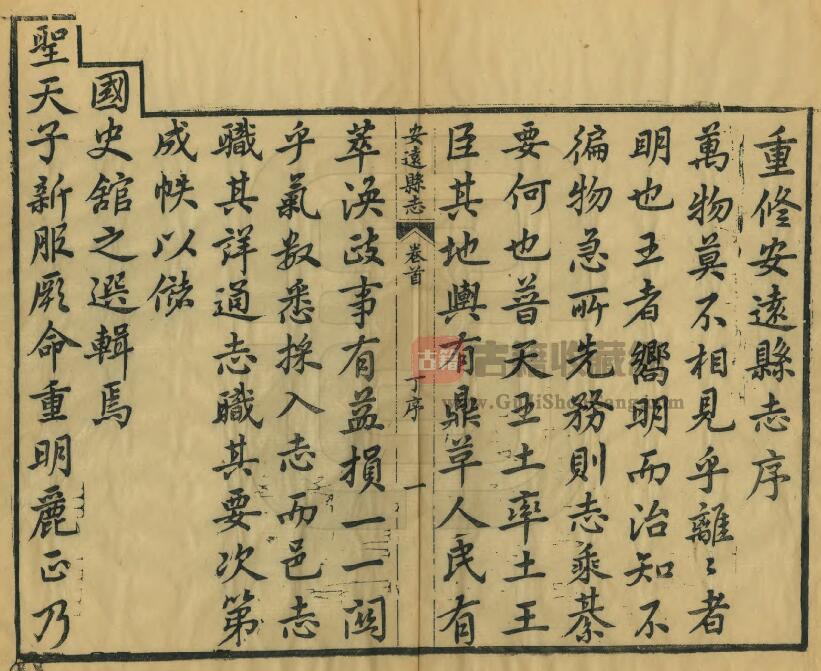 重修安遠縣志序
萬物莫不相見乎離離〻者
明也王者嚮明而治知不
徧物急所先務則志乘綦
要何也普天王土率土王
臣其地輿有鼎革人民有
安遠縣志 卷首 丁序 一
萃渙政事有益損一一關
乎氣数悉採入志而邑志
職其詳通志職其要次第
成帙以儲
國史舘之選輯焉
聖天子新服厥命重明麗正乃
古籍
古籍收藏
www.GuJiShouCang.com